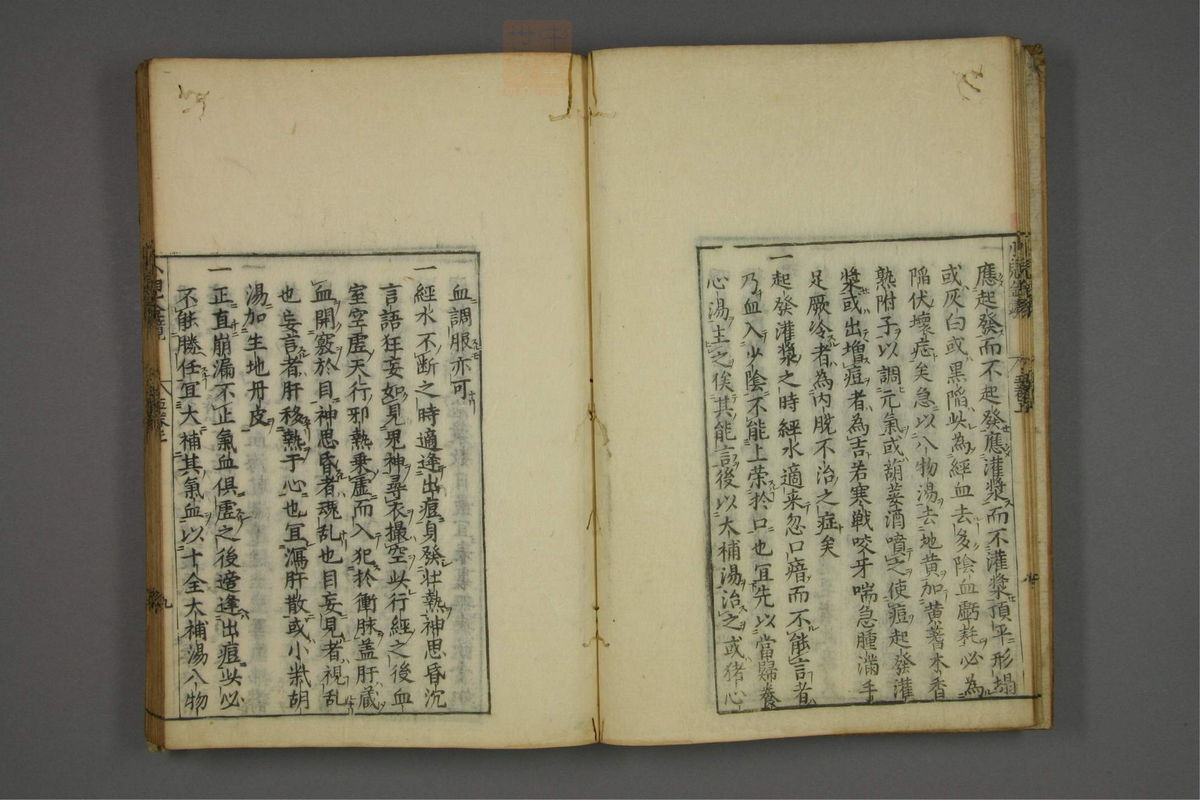 應起發而不起發應灌漿而不灌漿頂平形塌
或灰白或黑陷此為經血去多陰血虧耗必為
陷伏壞痘矣急以八物湯去地黄加黄蓍木香
熟附子以調元氣或葫荽酒噴之使痘起發灌
漿或出增痘者為吉若寒戰咬牙喘急腫滿手
足厥冷者為内脱不治之症矣
一起發灌漿之時經水適来忽口瘖而不能言者
乃血入少陰不能上荣於口也冝先以當歸養
心湯主之俟其能言後以大補湯治之或猪心
血調服亦可
一經水不断之時適逢出痘身發壮熱神思昏沉
言語狂妄如見鬼神尋衣撮空此行經之後血
室空虚天行邪熱乗虚而入犯於衝脉盖肝蔵
血開竅於目神思昏者魂乱也目妄見者視乱
也妄言者肝移熱于心也冝瀉肝散或小柴胡
湯加生地丹皮
一正直崩漏不正氣血俱虚之後適逢出痘此必
不能勝任冝大補其氣血以十全大補湯八物